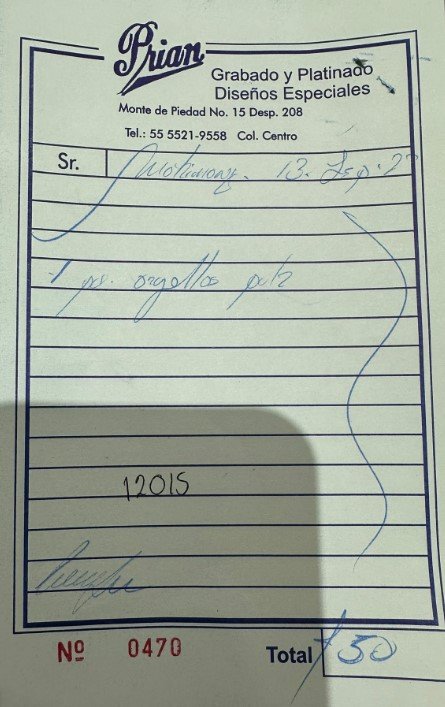 Prian
Grabado y Platinado
Diseños Especiales
Monte de Piedad No. 15 Desp. 208
Tel.: 55 5521-9558 Col. Centro
Sr. 13. Sep. 2
1
12015
Nº 0470 Total $50